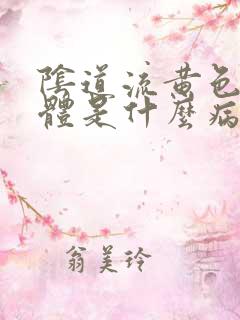 陰道流黃色
體是什麼病
翁美玲